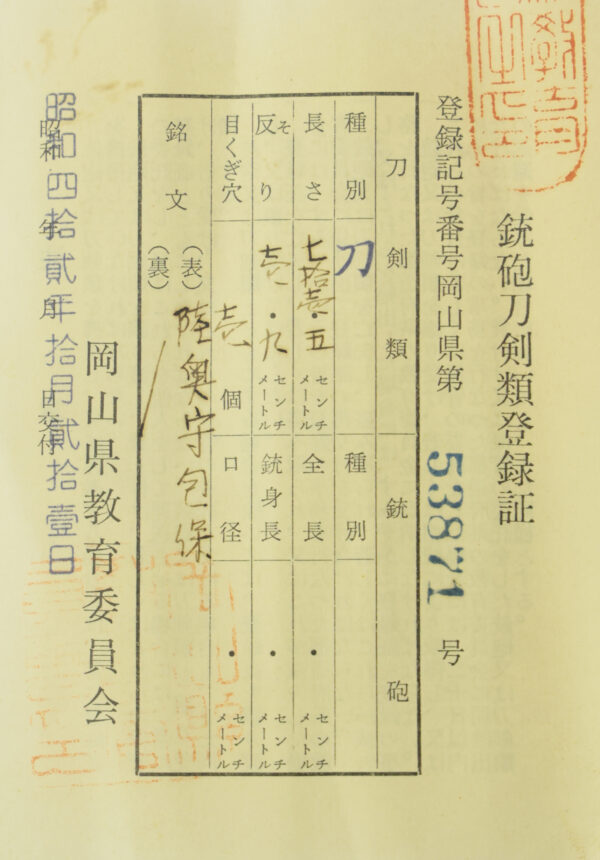 銃砲刀剣類登録証
登録記号番号岡山県第 53871 号
刀剣類 銃砲
種別 刀 種別
長さ 七拾壱・五 センチメートル 全長 ・ センチメートル
反り そ 壱・九 センチメートル 銃身長 ・ センチメートル
目くぎ穴 壱 個 口径 ・ センチメートル
銘文 (表) 陸奥守包保
(裏)
岡山県教育委員会
昭和四拾貳年拾月貳拾壹日
昭和 年 月 日交付